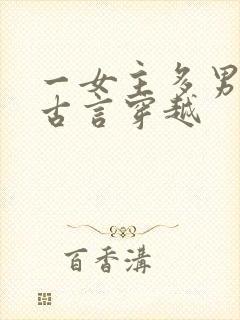 一女主多男
古言穿越
百香溝